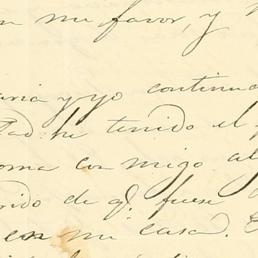 en mi favor, y
aria y yo continua
dad he tenido el
toma con migo al
rido de q.e fuese
en mi casa.